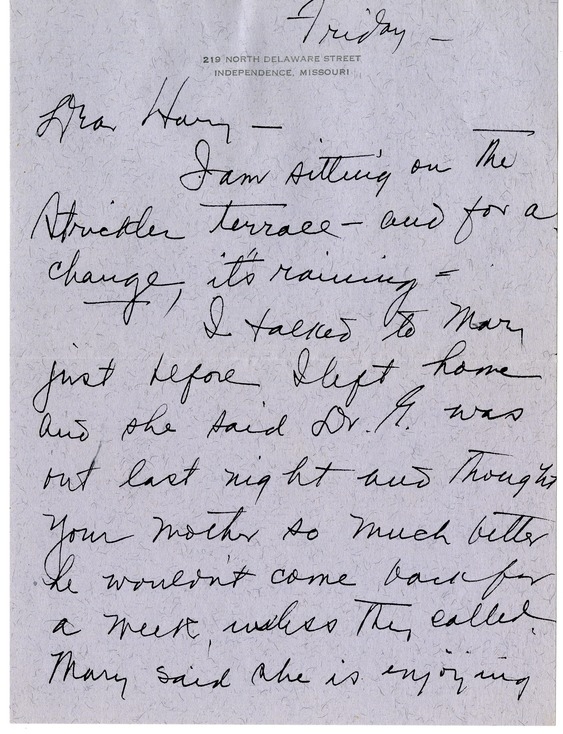 Friday —
219 NORTH DELAWARE STREET
INDEPENDENCE, MISSOURI
Dear Harry —
I am sitting on the
Strickler terrace — and for a
change, it's raining —
I talked to Mary
just before I left home
and she said Dr. G. was
out last night and thought
your mother so much better
he wouldn't come back for
a week, unless they called.
Mary said she is enjoying